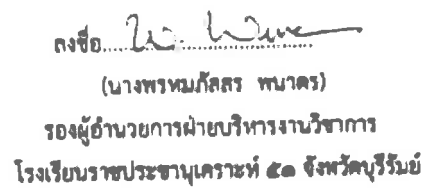 ลงชื่อ
(นางพรหมภัสสร พนาดร)
รองผู้อำนวยการฝ่ายบริหารงานวิชาการ
โรงเรียนราชประชานุเคราะห์ ๕๑ จังหวัดบุรีรัมย์